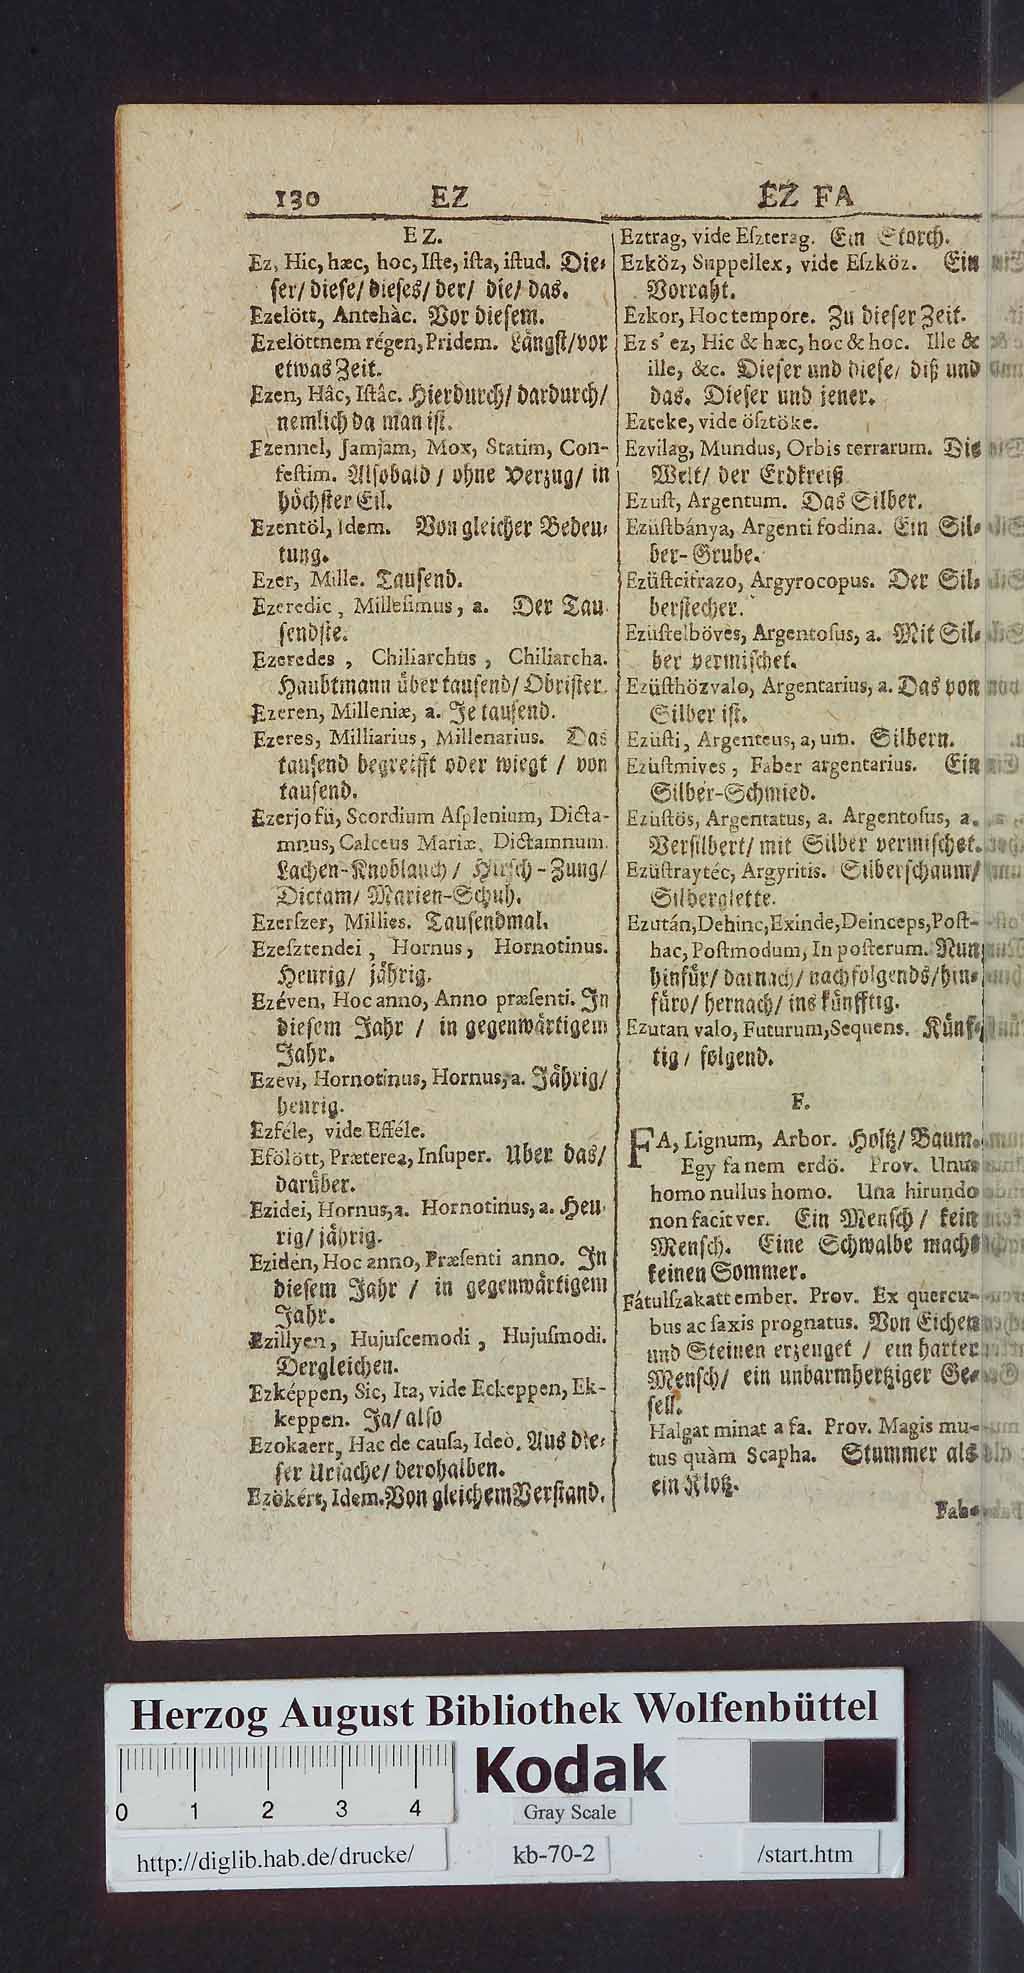 130 EZ
EZ FA
EZ.
Ez, Hic, hæc, hoc, Iſte, iſta, iſtud. Die⸗
ſer/ dieſe/ dieſes/ der/ die/ das.
Ezelött, Antehàc. Vor dieſem.
Ezelöttnem régen, Pridem. Laͤngſt/ vor
etwas Zeit.
Ezen, Hâc, Iſtâc. Hierdurch/ dardurch/
nemlich da man iſt.
Ezennel, Jamjam, Mox, Statim, Con-
feſtim. Alſobald / ohne Verzug/ in
hoͤchſter Eil.
Ezentöl, Idem. Von gleicher Bedeu⸗
tung.
Ezer, Mille. Tauſend.
Ezeredic, Milleſimus, a. Der Tau
ſendſte.
Ezeredes, Chiliarchus, Chiliarcha.
Haubtmann uͤber tauſend/ Obriſter.
Ezeren, Milleniæ, a. Je tauſend.
Ezeres, Milliarius, Millenarius. Das
tauſend begreifft oder wiegt / von
tauſend.
Ezerjofü, Scordium Aſplenium, Dicta-
mnus, Calceus Mariæ, Dictamnum.
Lachen-Knoblauch/ Hirſch-Zung/
Dictam/ Marien-Schuh.
Ezerſzer, Millies. Tauſendmal.
Ezeſztendei, Hornus, Hornotinus.
Heurig/ jaͤhrig.
Ezéven, Hoc anno, Anno præſenti. In
dieſem Jahr / in gegenwaͤrtigem
Jahr.
Ezévi, Hornotinus, Hornus, a. Jaͤhrig/
heurig.
Ezféle, vide Efféle.
Efölött, Præterea, Inſuper. Uber das/
daruͤber.
Ezidei, Hornus, a. Hornotinus, a. Heu⸗
rig/ jaͤhrig.
Eziden, Hoc anno, Præſenti anno. In
dieſem Jahr / in gegenwaͤrtigem
Jahr.
Ezillyen, Hujuſcemodi, Hujuſmodi.
Dergleichen.
Ezképpen, Sic, Ita, vide Eckeppen, Ek-
keppen. Ja/ alſo
Ezokaert, Hac de cauſa, Ideò. Aus die⸗
ſer Urſache/ derohalben.
Ezökért, Idem. Von gleichem Verſtand.
Eztrag, vide Eſzterag. Ein Storch.
Ezköz, Suppellex, vide Eſzköz. Ein
Vorraht.
Ezkor, Hoc tempore. Zu dieſer Zeit.
Ez s' ez, Hic & hæc, hoc & hoc. Ille &
ille, &c. Dieſer und dieſe/ diß und
das. Dieſer und jener.
Ezteke, vide öſztöke.
Ezvilag, Mundus, Orbis terrarum. Die
Welt/ der Erdkreiß
Ezüſt, Argentum. Das Silber.
Ezüſtbánya, Argenti fodina. Ein Sil⸗
ber-Grube.
Ezüſtcitrazo, Argyrocopus. Der Sil⸗
berſtecher.
Ezüſtelböves, Argentoſus, a. Mit Sil⸗
ber vermiſchet.
Ezüſthözvalo, Argentarius, a. Das von
Silber iſt.
Ezüſti, Argenteus, a, um. Silbern.
Ezüſtmives, Faber argentarius. Ein
Silber-Schmied.
Ezüſtös, Argentatus, a. Argentoſus, a.
Verſilbert/ mit Silber vermiſchet.
Ezüſtraytéc, Argyritis. Silberſchaum/
Silberglette.
Ezután, Dehinc, Exinde, Deinceps, Poſt-
hac, Poſtmodum, In poſterum. Nun
hinfuͤr/ darnach/ nachfolgends/ hin⸗
fuͤro/ hernach/ ins kuͤnfftig.
Ezutan valo, Futurum, Sequens. Kuͤnf⸗
tig/ folgend.
F.
FA, Lignum, Arbor. Holtz/ Baum.
Egy fa nem erdö. Prov. Unus
homo nullus homo. Una hirundo
non facit ver. Ein Menſch / kein
Menſch. Eine Schwalbe macht
keinen Sommer.
Fátulſzakatt ember. Prov. Ex quercu-
bus ac ſaxis prognatus. Von Eichen
und Steinen erzeuget / ein harter
Menſch/ ein unbarmhertziger Ge⸗
ſell.
Halgat mint a fa. Prov. Magis mu-
tus quàm Scapha. Stummer als
ein Klotz.
Fab-
Herzog August Bibliothek Wolfenbüttel
Kodak
0 1 2 3 4
Gray Scale
http://diglib.hab.de/drucke/
kb-70-2
/start.htm